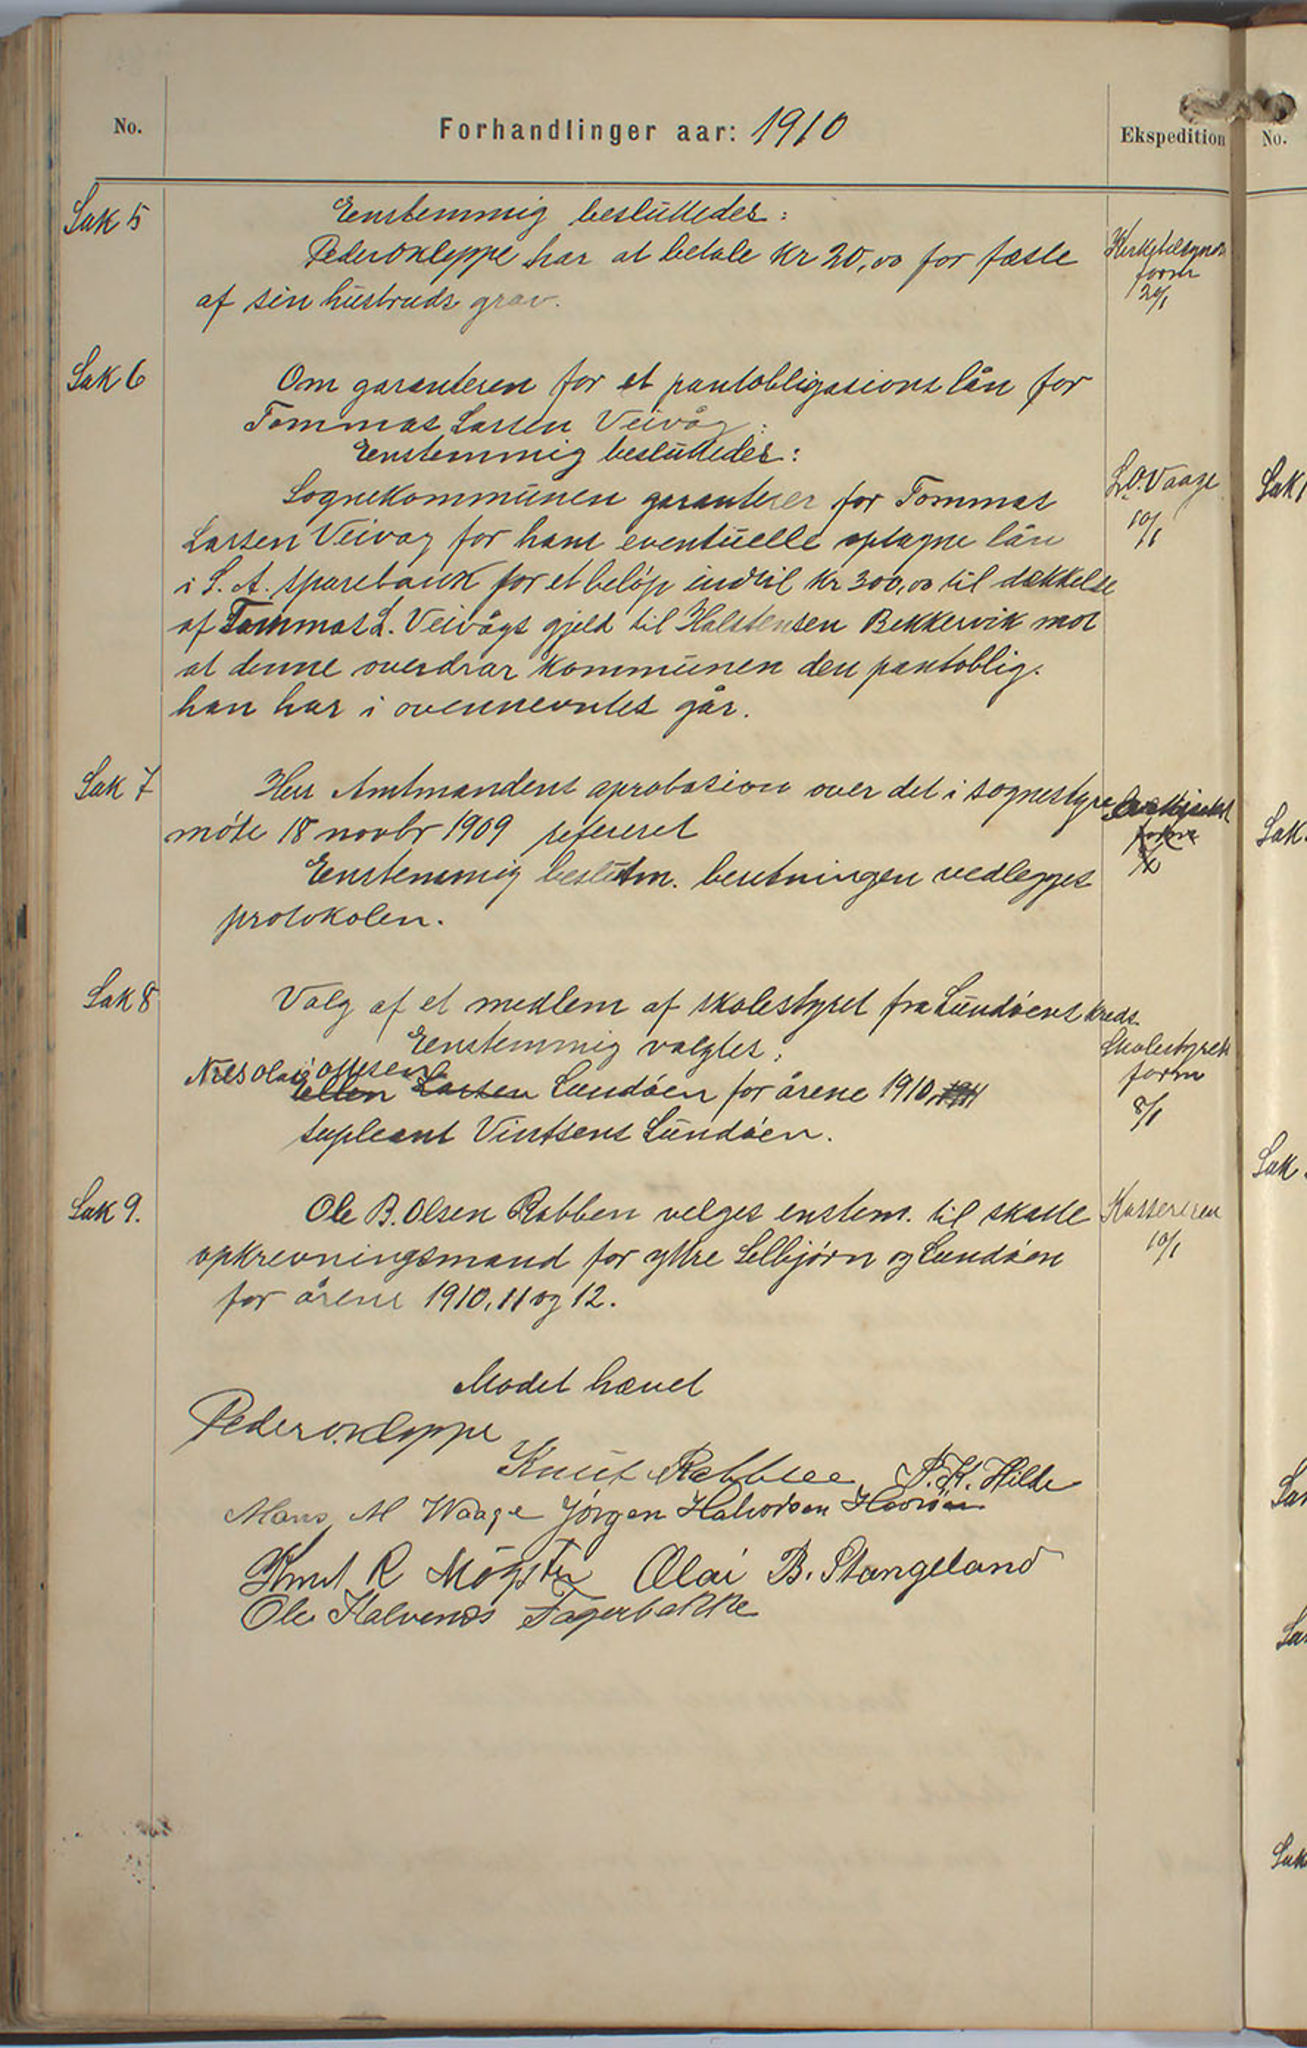 No.
Forhandlinger aar: 1910
Ekspedition
No.
Sak 5
Enstemmig besluttedes:
Peder O Kleppe har at betale kr 20,00 for fæste
af sin hustruds grav.
Kirketilsynets
form
20/1
Sak 6
Om garanteren for et pantobligasions lån for
Tommas Larsen Veivåg:
Enstemmig besluttedes:
Sognekommunen garanterer for Tommas
Larsen Veivåg for hans eventuelle optagne lån
i S. A. sparebank for et beløp indtil kr 300,00 til dækkelse
af Tommas L. Veivågs gjeld til Halstensen Bekkervik mot
at denne overdrar kommunen den pantoblig.
han har i ovennevntes går.
L.O. Vaage
10/1
Sak 7
Herr Amtmandens aprobasion over det i sognestyre
møte 18 novbr 1909 refereret
Enstemmig beslutm. beretningen vedlegges
protokolen.
form
Sak 8
Valg af et medlem af skolestyret fra Lundøens kreds
Enstemmig valgtes:
Nils Olai Ottesen
Ellen Larsen Lundøen for årene 1910, 1911
supleant Vintsens Lundøen.
Skolestyrets
form
8/1
Sak 9.
Ole B. Olsen Rabben velges enstem. til skatte
opkrevningsmand for ytre Selbjørn og Lundøen
for årene 1910, 11 og 12.
Kassereren
10/1
Mødet hævet
Peder O. Kleppe
Knut Rabben P. K. Hilde
Mons M Waage Jørgen Halvorsen Horsøen
Knut R Møgster Olai B. Stangeland
Ole Halvends Fagerbakke
Sak
Sak
Sak
Sak